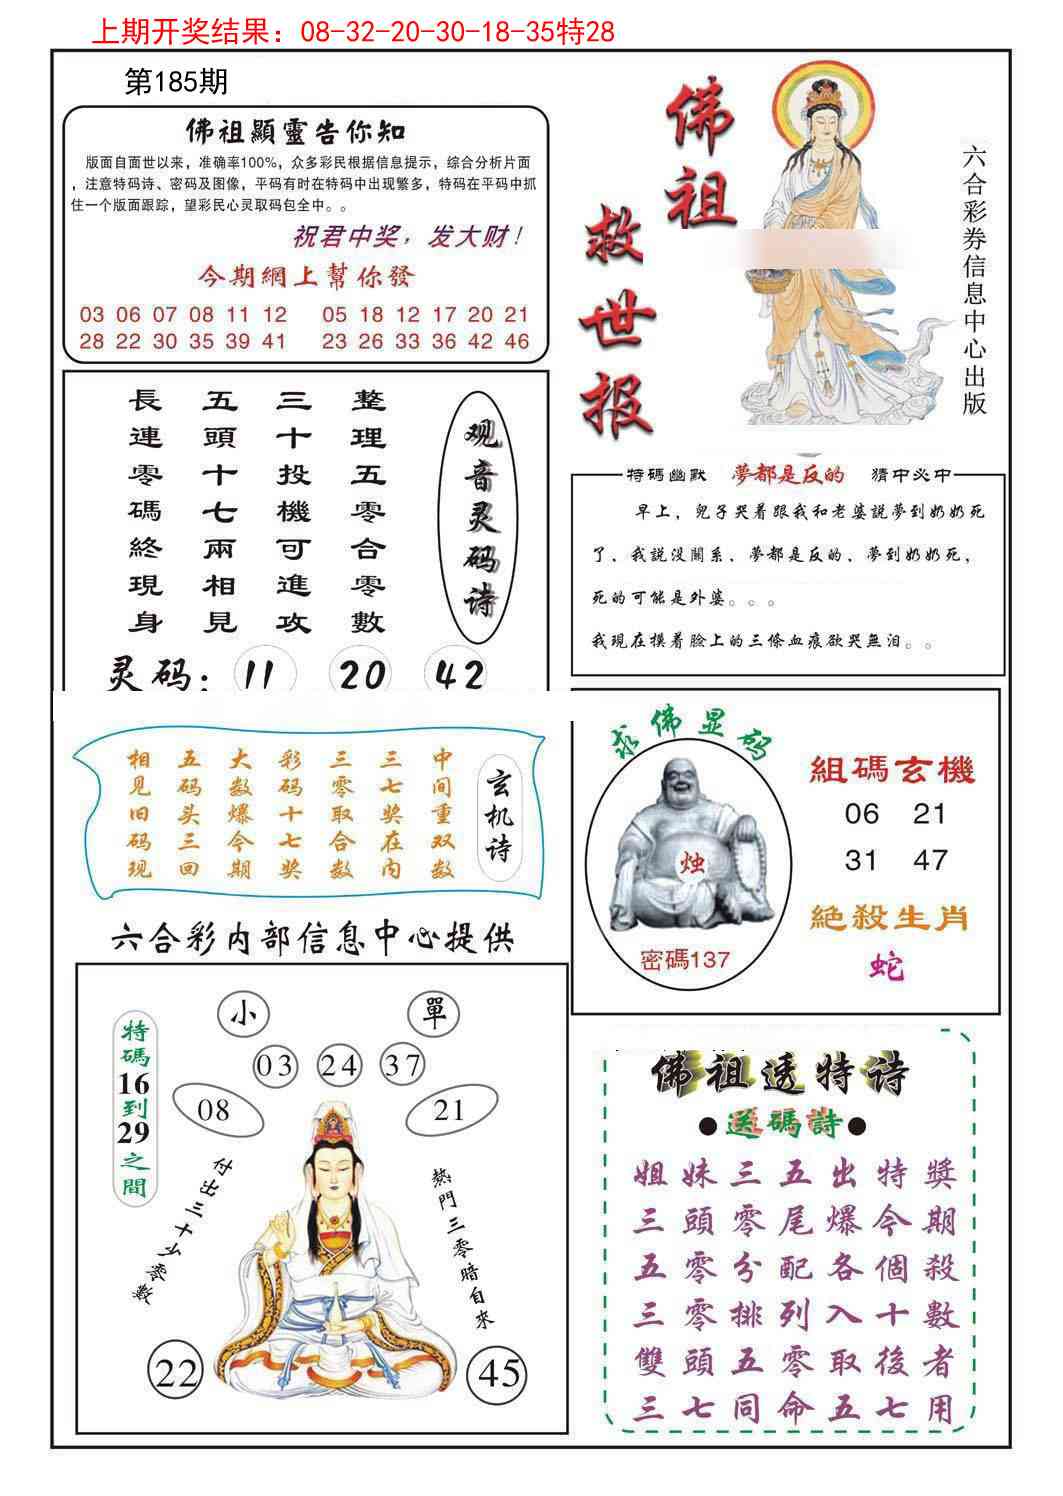 上期开奖结果：08-32-20-30-18-35特28
第185期
佛祖顯靈告你知
版面自面世以来，准确率100%，众多彩民根据信息提示，综合分析片面
，注意特码诗、密码及图像，平码有时在特码中出现繁多，特码在平码中抓
住一个版面跟踪，望彩民心灵取码包全中。。
祝君中奖，发大财！
今期網上幫你發
03 06 07 08 11 12 05 18 12 17 20 21
28 22 30 35 39 41 23 26 33 36 42 46
佛祖
救世报
六合彩券信息中心出版
觀音灵码诗
整理五零合零數
三十投機可進攻
五頭十七兩相見
長連零碼終現身
灵码：11 20 42
特碼幽默 夢都是反的 猜中必中
早上，兒子哭着跟我和老婆説夢到奶奶死
了、我説没關系、夢都是反的、夢到奶奶死，
死的可能是外婆。。。
我現在摸着臉上的三條血痕欲哭無泪。。
玄机诗
中间重双数
三七奖在内
三零取合数
彩码十七奖
大数爆今期
五码头三回
相见旧码现
求佛显码
烛
密碼137
組碼玄機
06 21
31 47
絕殺生肖
蛇
六合彩内部信息中心提供
小 單
03 24 37
08 21
特碼16到29之間
付出三十少零數
熱門三零暗自來
22 45
佛祖透特诗
●送碼詩●
姐妹三五出特獎
三頭零尾爆今期
五零分配各個殺
三零排列入十數
雙頭五零取後者
三七同命五七用